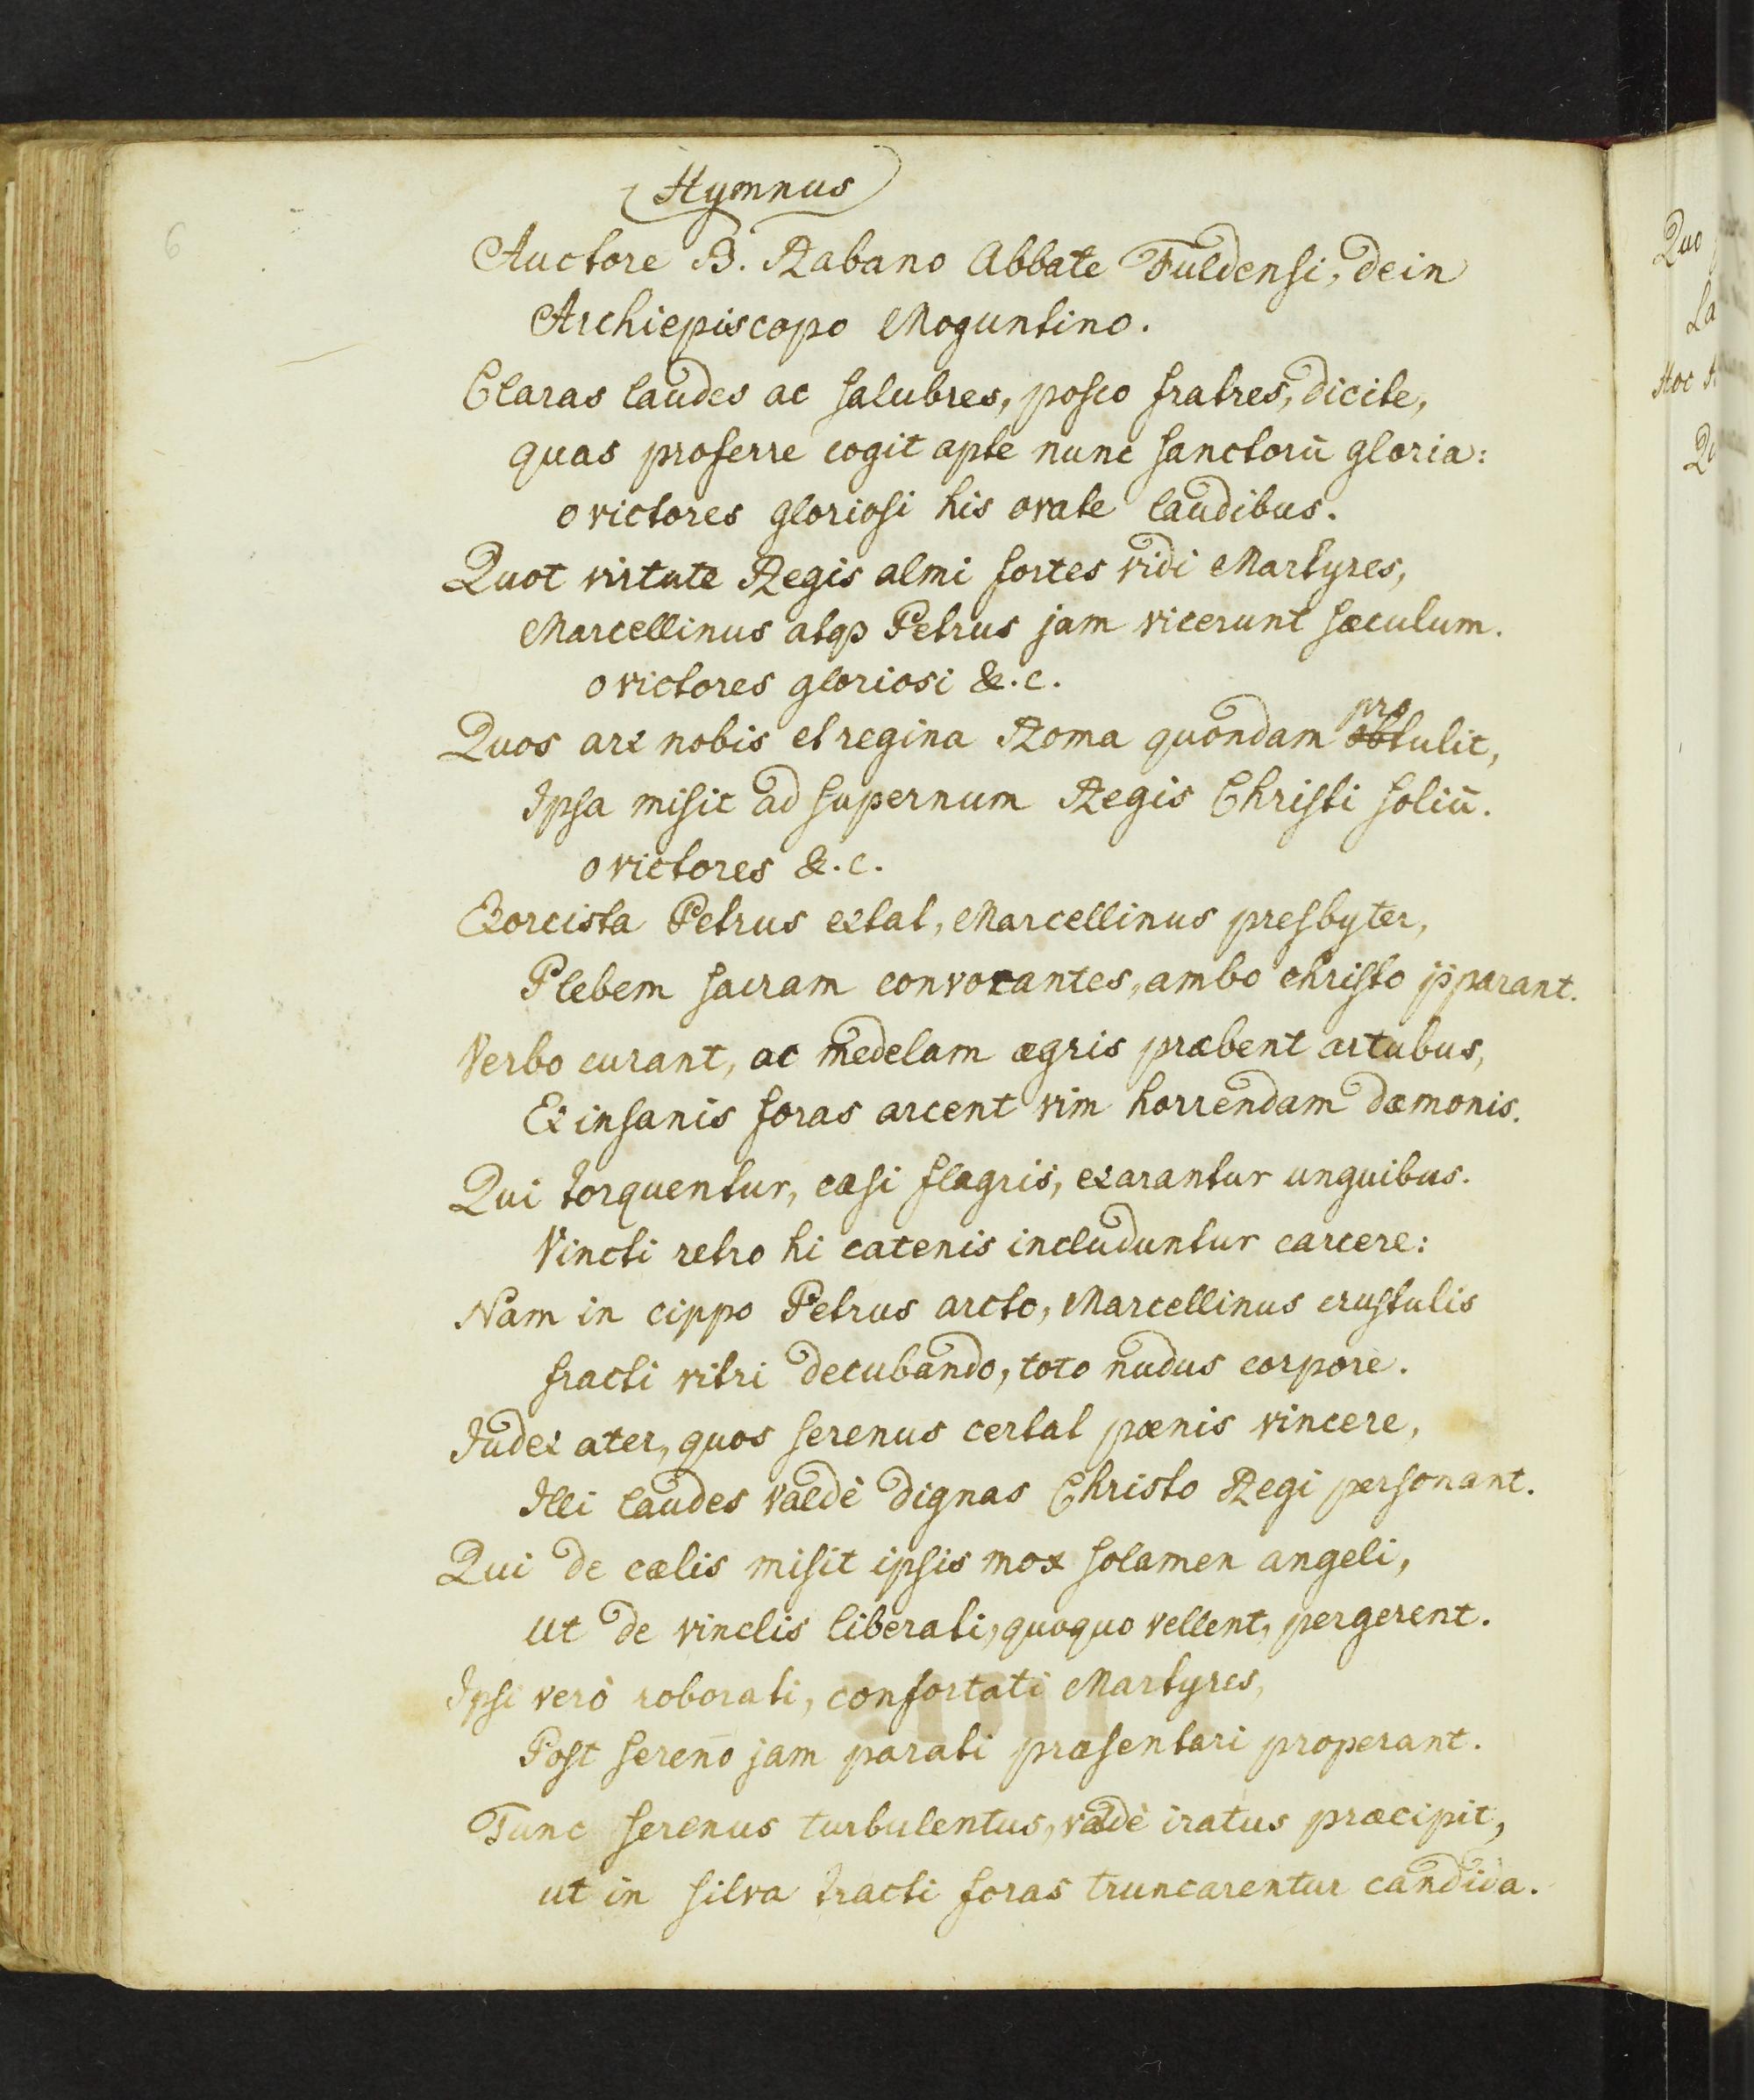 6
Hymnus
Auctore B. Rabano Abbate Fuldensi, dein
Archiepiscopo Moguntino.
Claras laudes ac salubres, posco fratres, dicite,
quas proferre cogit apte nunc sanctorū gloria:
o victores gloriosi his ovate laudibus.
Quot virtute Regis almi fortes vidi Martyres,
Marcellinus atqꝫ Petrus jam vicerunt sæculum.
o victores gloriosi &.c.
Quos arx nobis et regina Roma quondam obtulit, pro
Ipsa misit ad supernum Regis Christi soliū.
o victores &.c.
Exorcista Petrus extat, Marcellinus presbyter,
Plebem sacram convocantes, ambo christo p̄parant.
Verbo curant, ac medelam ægris præbent artubus,
Ex insanis foras arcent vim horrendam dæmonis.
Qui torquentur, cæsi flagris, exarantur unguibus.
Vincti retro hi catenis includuntur carcere:
Nam in cippo Petrus arcto, Marcellinus crustulis
fracti vitri decubando, toto nudus corpore.
Judex ater, quos serenus certat pœnis vincere,
Illi laudes valdè dignas Christo Regi personant.
Qui de cælis misit ipsis mox solamen angeli,
ut de vinclis liberati, quoquo vellent, pergerent.
Ipsi verò roborati, confortati Martyres,
Post sereno jam parati præsentari properant.
Tunc serenus turbulentus, valdè iratus præcipit,
ut in silva tracti foras truncarentur candida.
Quo
La
Hoc